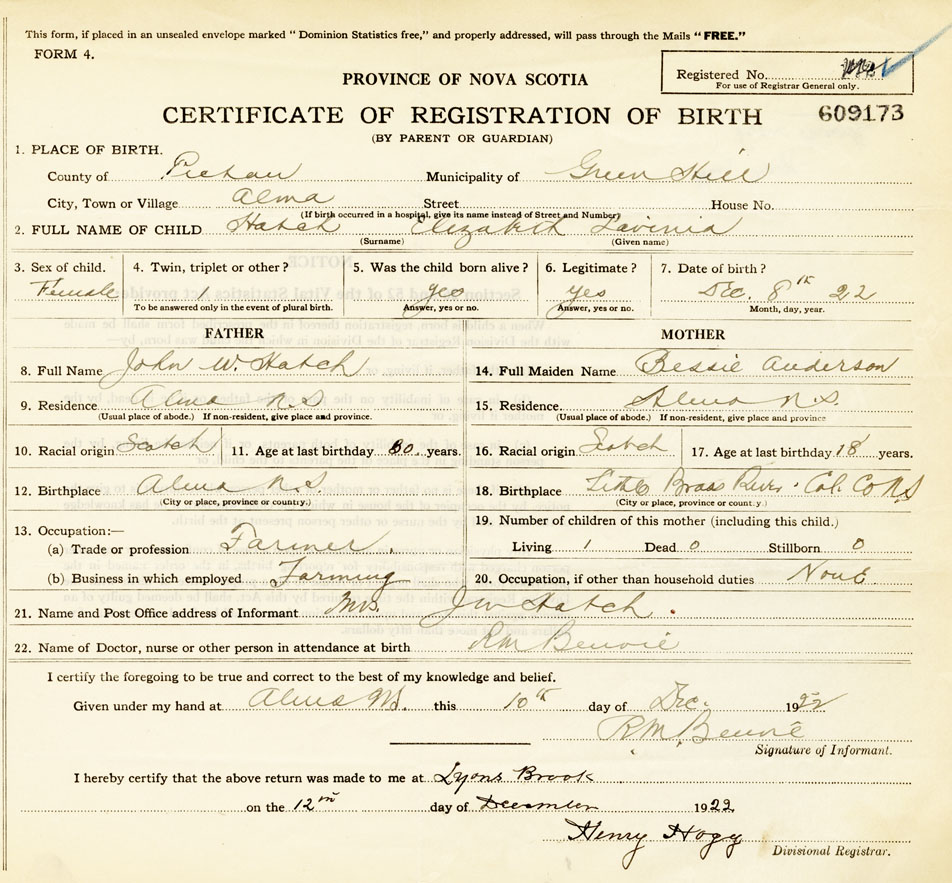 This form, if placed in an unsealed envelope marked "Dominion Statistics free," and properly addressed, will pass through the Mails "FREE."
FORM 4.
Registered No.
For use of Registrar General only.
PROVINCE OF NOVA SCOTIA
CERTIFICATE OF REGISTRATION OF BIRTH 609173
(BY PARENT OR GUARDIAN)
1. PLACE OF BIRTH.
County of Pictou Municipality of Green Hill
City, Town or Village Alma Street House No.
(If birth occurred in a hospital, give its name instead of Street and Number)
2. FULL NAME OF CHILD Hatch Elizabeth Lavinia
(Surname) (Given name)
3. Sex of child. 4. Twin, triplet or other? 5. Was the child born alive? 6. Legitimate? 7. Date of birth?
Female 1 yes yes Dec. 8th 22
To be answered only in the event of plural birth. Answer, yes or no. Answer, yes or no. Month, day, year.
FATHER MOTHER
8. Full Name John W. Hatch 14. Full Maiden Name Bessie Anderson
9. Residence Alma N.S. 15. Residence Alma N.S.
(Usual place of abode.) If non-resident, give place and province. (Usual place of abode.) If non-resident, give place and province
10. Racial origin Scotch 11. Age at last birthday 30 years. 16. Racial origin Scotch 17. Age at last birthday 18 years.
12. Birthplace Alma N.S. 18. Birthplace River Col. Co NS
(City or place, province or country.) (City or place, province or country.)
13. Occupation:— 19. Number of children of this mother (including this child.)
(a) Trade or profession Farmer Living 1 Dead 0 Stillborn 0
(b) Business in which employed Farming 20. Occupation, if other than household duties None
21. Name and Post Office address of Informant Mrs. J W Hatch.
22. Name of Doctor, nurse or other person in attendance at birth R M Benvie
I certify the foregoing to be true and correct to the best of my knowledge and belief.
Given under my hand at Alma NS. this 10th day of Dec. 1922
R. M. Benvie
Signature of Informant.
I hereby certify that the above return was made to me at Lyons Brook
on the 12th day of December 1922
Henry Hogg
Divisional Registrar.